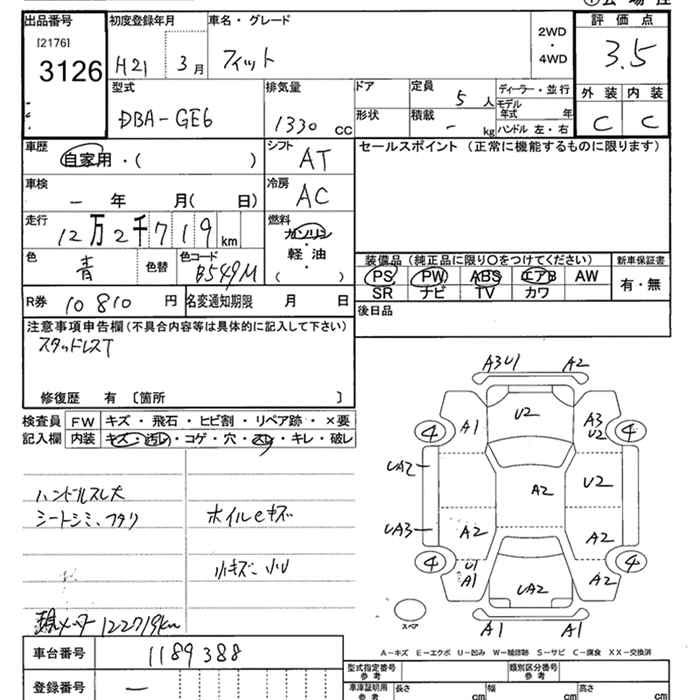 出品番号 初度登録年月 車名・グレード 評価点
[2176]
3126 H21 3月 フィット 2WD・4WD 3.5
型式 排気量 ドア 定員 ディーラー・並行 外装 内装
DBA-GE6 1330 cc 5人 モデル年式 年 C C
形状 積載 - kg ハンドル 左・右
車歴 シフト セールスポイント (正常に機能するものに限ります)
自家用・( ) AT
車検 冷房
- 年 月( 日) AC
走行 燃料
12万2千719km ガソリン・軽油
( )
色 色替 色コード 装備品 (純正品に限り○をつけてください) 新車保証書
青 B549M PS PW ABS エアB AW 有・無
SR ナビ TV カワ
R券 10810 円 名変通知期限 月 日 後日品
注意事項申告欄 (不具合内容等は具体的に記入して下さい)
スタッドレスT
修復歴 有 〔箇所 〕
検査員 FW キズ・飛石・ヒビ割・リペア跡・×要
記入欄 内装 キズ・汚レ・コゲ・穴・スレ・キレ・破レ
ハンドルスレ大
シートシミ、フタリ ホイルキズ
小キズ 小U
現メーター 122719km
A3U1 A2
U2
4 A1 A3 U2 4
UA2 A2 U2
UA3 A2 A2
4 U1 A1 UA2 A2 4
スペア A1 A1
A-キズ E-エクボ U-凹み W-補修跡 S-サビ C-腐食 XX-交換済
車台番号 1189388
登録番号 -
型式指定番号 参考 類別区分番号 参考
車庫証明用 参考 長さ cm 幅 cm 高さ cm